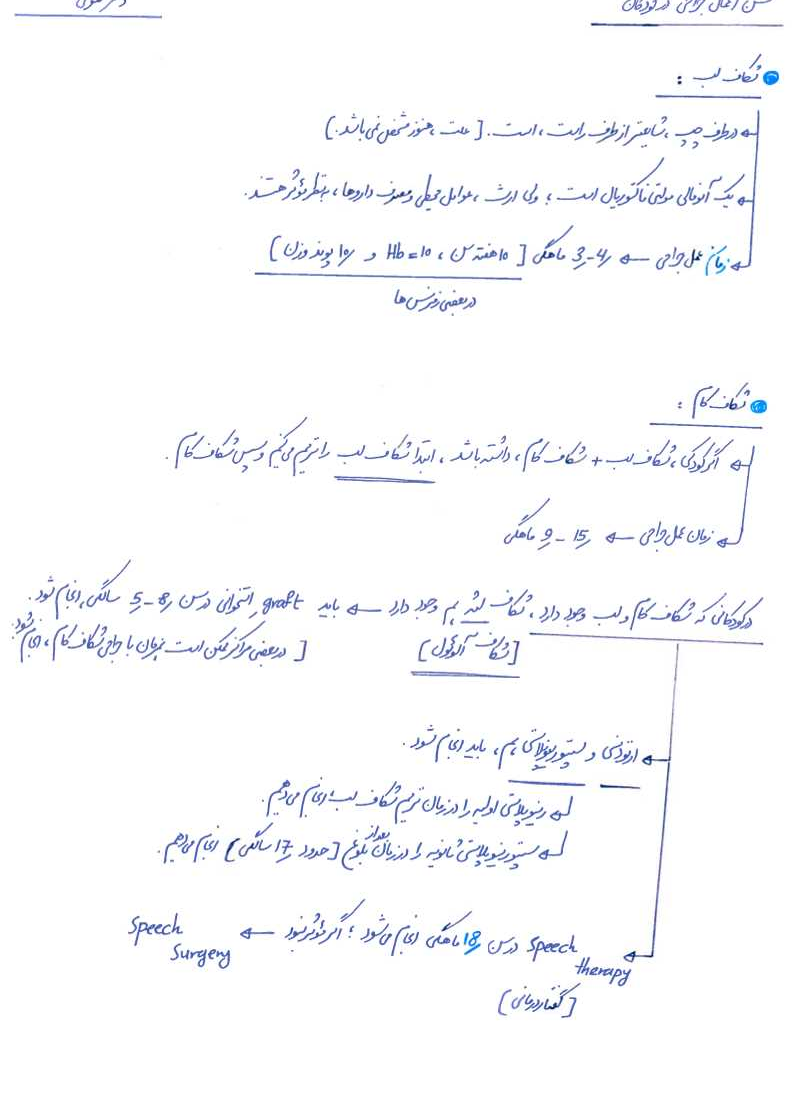 سن اعمال جراحی در کودکان
شکاف لب :
در طرف چپ، شایعتر از طرف راست، است. [علت، هنوز مشخص نمی باشد.]
یک آنومالی مولتی فاکتوریال است ؛ ولی ارث، عوامل محیطی و مصرف داروها، بنظر مؤثر هستند.
زمان عمل جراحی ← 3-4 ماهگی [10 هفته سن، Hb = 10 و 10 پوند وزن]
در بعضی رفرنس ها
شکاف کام :
اگر کودکی، شکاف لب + شکاف کام، داشته باشد، ابتدا شکاف لب را ترمیم می کنیم و سپس شکاف کام.
زمان عمل جراحی ← 9-15 ماهگی
در کودکانی که شکاف کام و لب وجود دارد، شکاف لثه هم وجود دارد ← باید graft استخوانی در سن 5-8 سالگی، انجام شود.
[شکاف آلوئول] [در بعضی مراکز ممکن است همزمان با جراحی شکاف کام، انجام شود.]
ارتودنسی و سپتورینوپلاستی هم، باید انجام شود.
رینوپلاستی اولیه را در زمان ترمیم شکاف لب، انجام می دهیم.
سپتورینوپلاستی ثانویه را در زمان بعد از بلوغ [حدود 17 سالگی] انجام می دهیم.
Speech therapy در سن 18 ماهگی انجام می شود ؛ اگر مؤثر نبود ← Speech Surgery
[گفتاردرمانی]